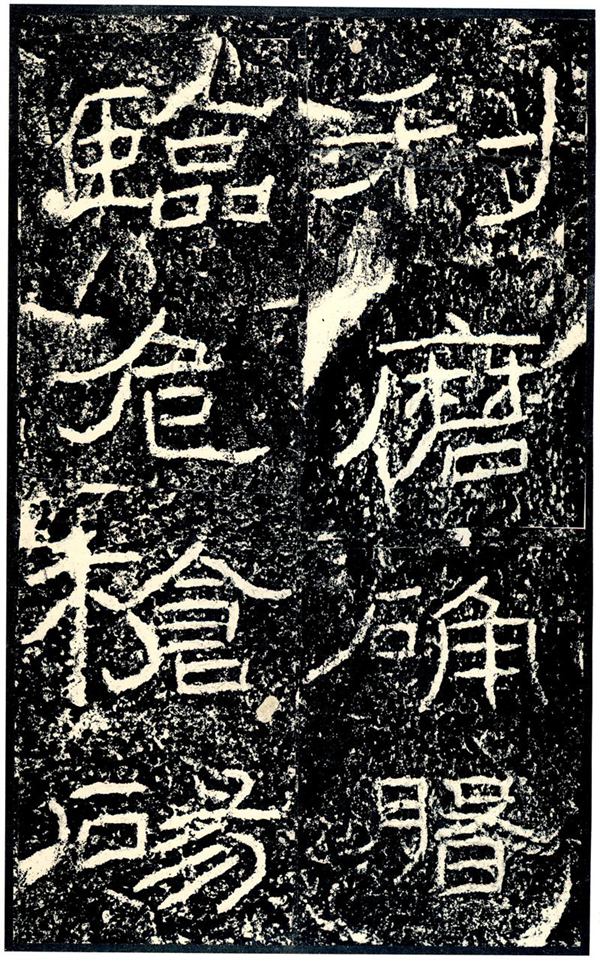 利磨确磐
臨危槍碭